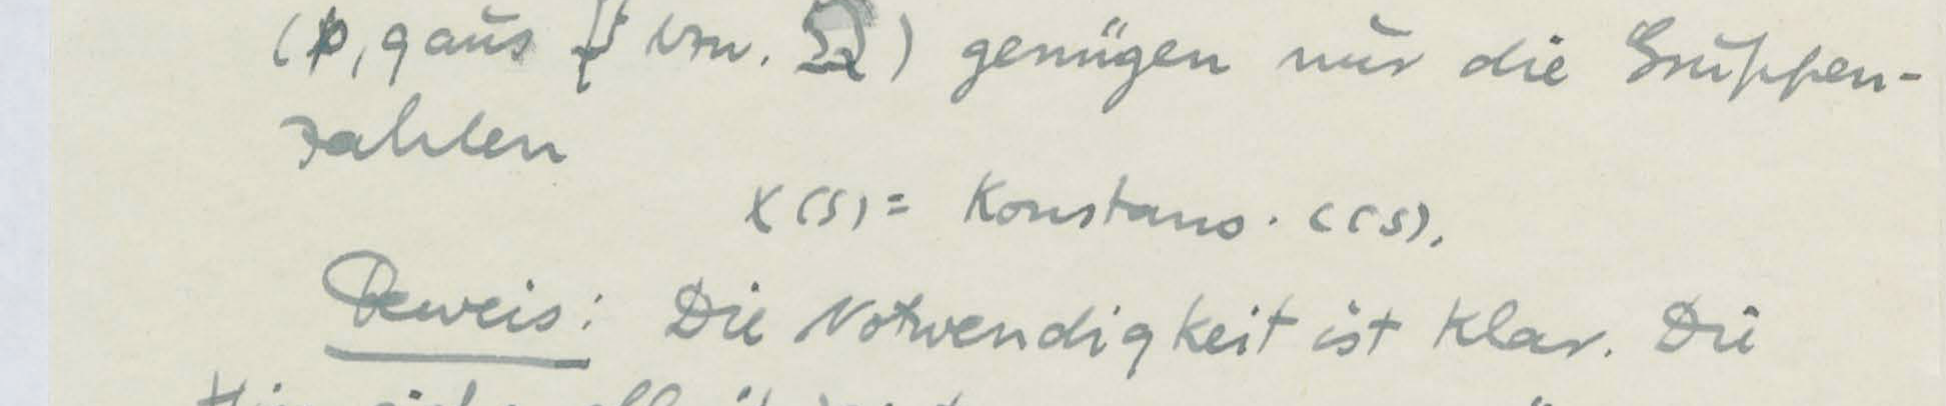 (p, q aus f bzw. Ω) genügen nur die Gruppen-
zahlen
x(s) = Konstans · c(s).
Beweis: Die Notwendigkeit ist klar. Die